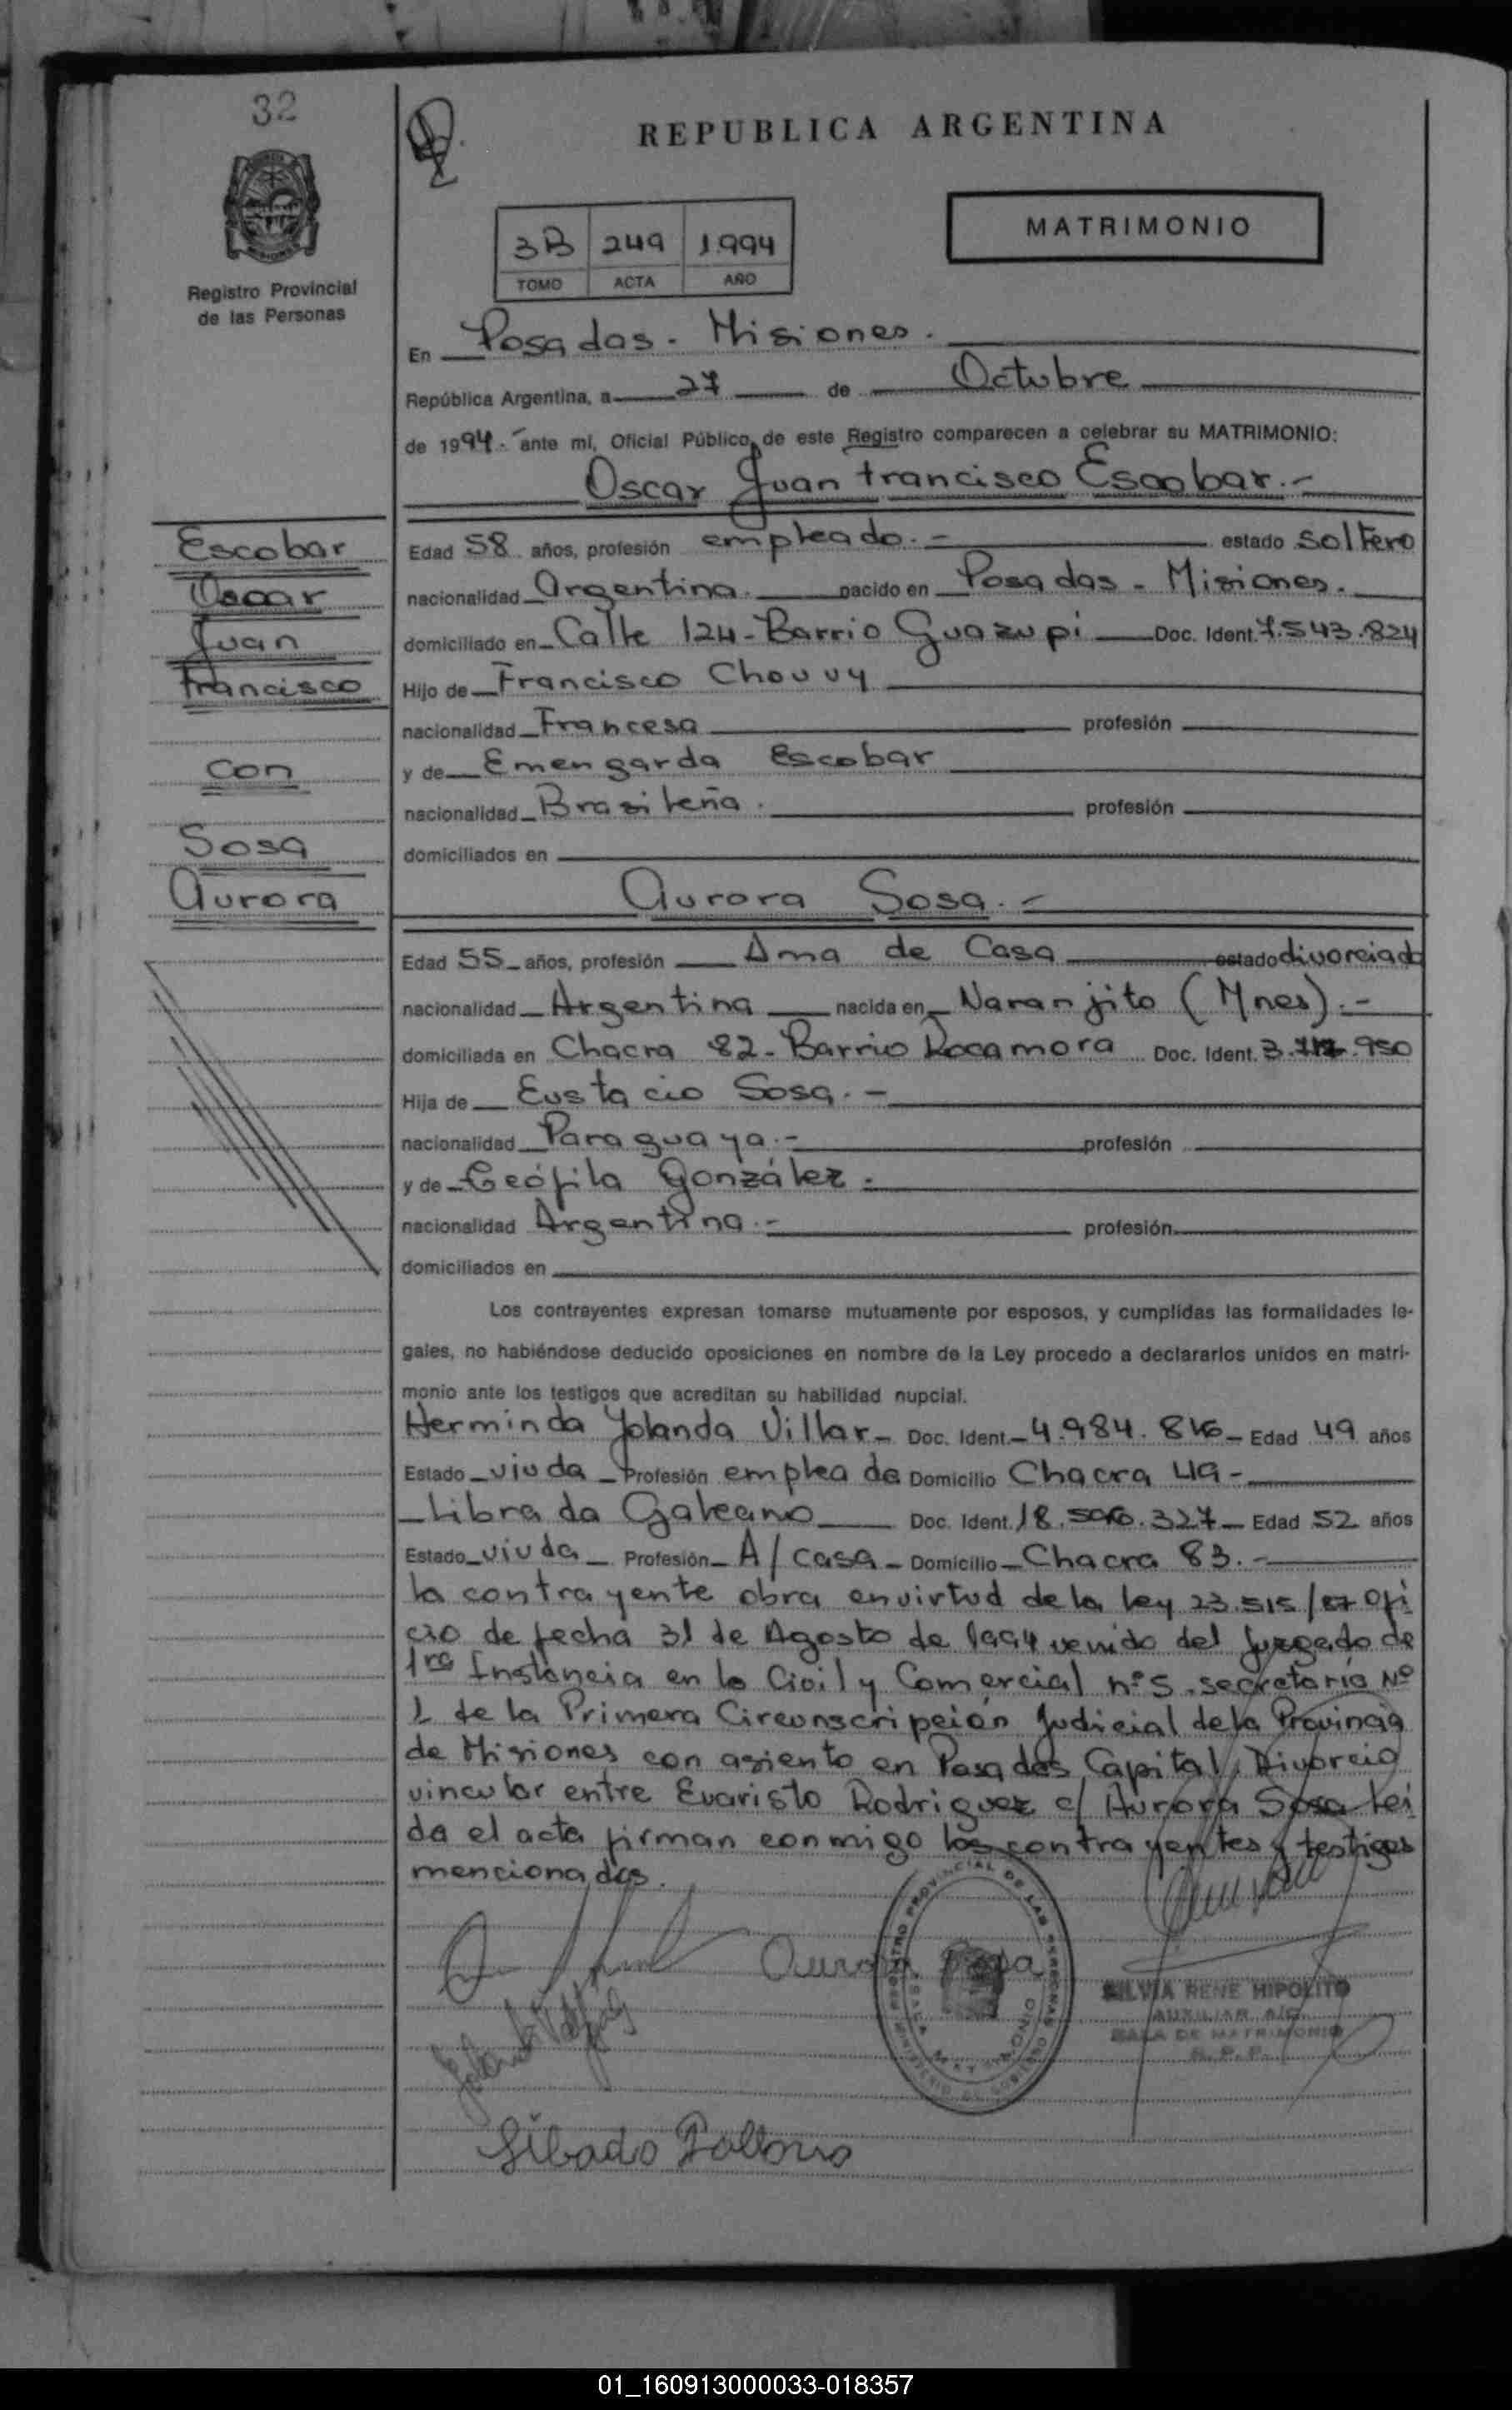 32
REPUBLICA ARGENTINA
MATRIMONIO
3B 249 1994
TOMO ACTA AÑO
Registro Provincial
de las Personas
En Posadas - Misiones.
República Argentina, a 27 de Octubre
de 1994.- ante mí, Oficial Público de este Registro comparecen a celebrar su MATRIMONIO:
Oscar Juan Francisco Escobar.-
Escobar
Oscar
Juan
Francisco
con
Sosa
Aurora
Edad 58 años, profesión empleado.- estado soltero
nacionalidad Argentina. nacido en Posadas - Misiones.
domiciliado en Calle 124 - Barrio Guazupi Doc. Ident. 7.543.824
Hijo de Francisco Chouvy
nacionalidad Francesa profesión
y de Emengarda Escobar
nacionalidad Brasileña. profesión
domiciliados en
Aurora Sosa.-
Edad 55 años, profesión Ama de Casa estado divorciada
nacionalidad Argentina nacida en Naranjito (Mnes).-
domiciliada en Chacra 82 - Barrio Rocamora Doc. Ident. 3. .950
Hija de Eustacio Sosa.-
nacionalidad Paraguaya.- profesión
y de Teófila González.
nacionalidad Argentina.- profesión
domiciliados en
Los contrayentes expresan tomarse mutuamente por esposos, y cumplidas las formalidades le-
gales, no habiéndose deducido oposiciones en nombre de la Ley procedo a declararlos unidos en matri-
monio ante los testigos que acreditan su habilidad nupcial.
Herminda Yolanda Villar - Doc. Ident. 4.984. Edad 49 años
Estado viuda Profesión empleada Domicilio Chacra 49 -
Librada Galeano Doc. Ident. 18. .327 Edad 52 años
Estado viuda Profesión A/casa - Domicilio Chacra 83.-
la contrayente obra en virtud de la ley 23.515/87 ofi
cio de fecha 31 de Agosto de 1994 venido del Juzgado de
1ra Instancia en lo Civil y Comercial nº 5, secretaría Nº
1 de la Primera Circunscripción Judicial de la Provincia
de Misiones con asiento en Posadas, Capital, Divorcio
vincular entre Evaristo Rodriguez c/ Aurora Sosa lei
da el acta firman conmigo los contrayentes y testigos
mencionados.
Aurora Sosa
SILVIA RENE HIPOLITO
AUXILIAR A/C
SALA DE MATRIMONIO
R. P. P.
01_160913000033-018357